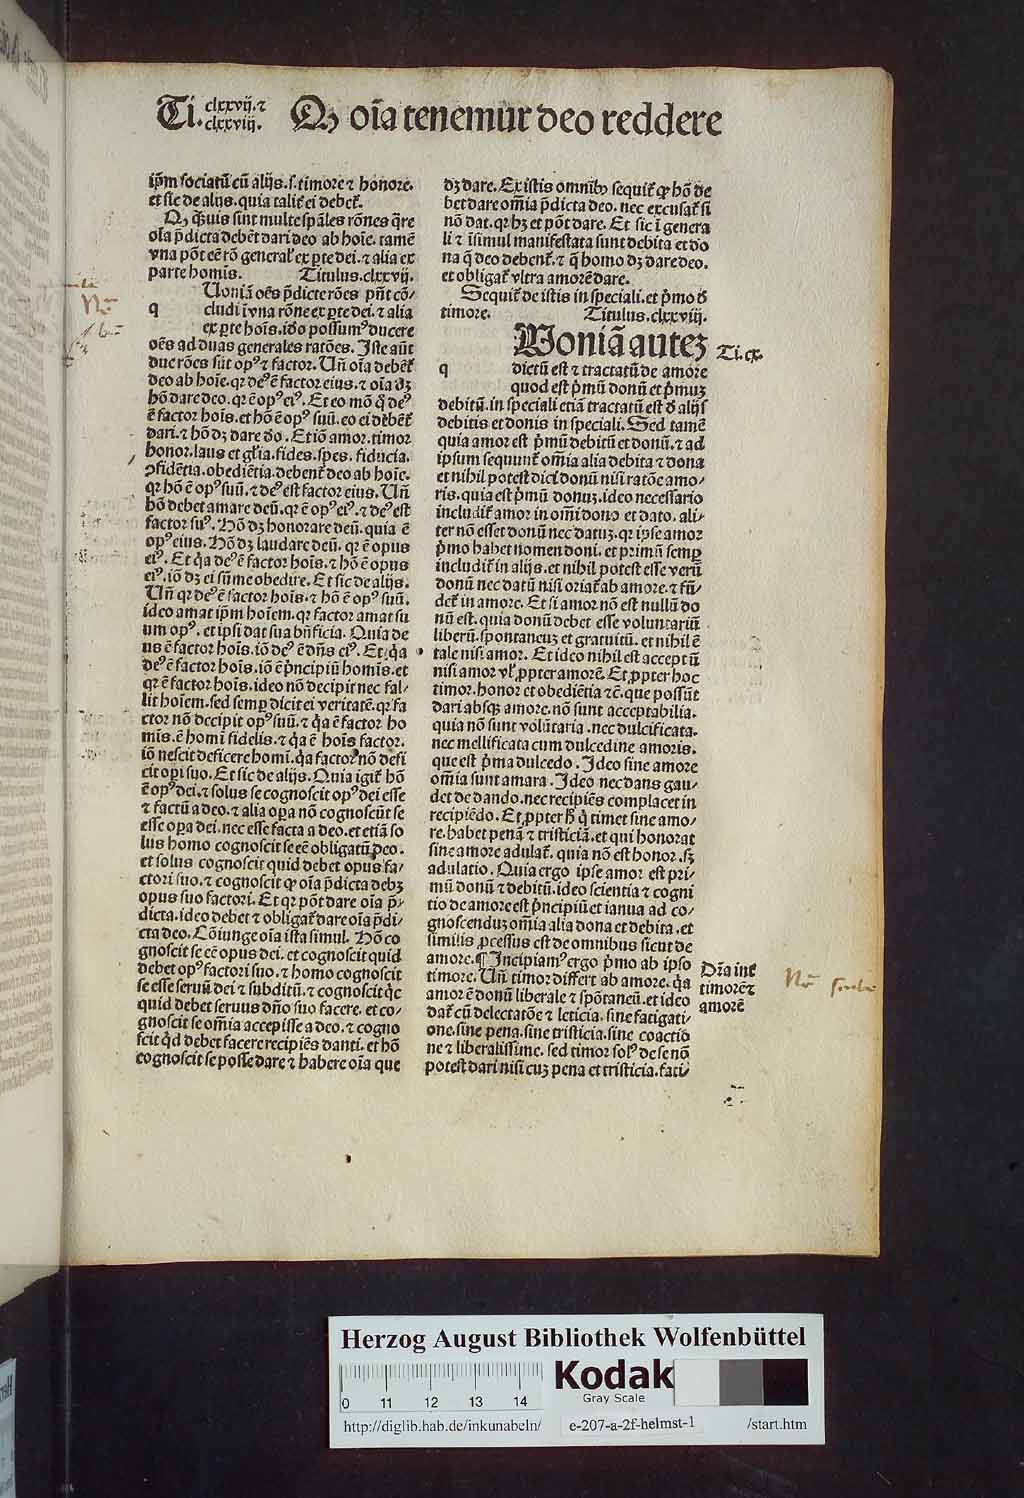 Ti. clxxvij. ⁊
clxxviij.
Q oĩa tenemur deo reddere
ip̃m sociatũ cũ alijs .s. timore ⁊ honore.
et sic de alijs. quia talit̃ ei debet̃.
Q q̃uis sint multe sp̃ales rõnes q̃re
oĩa p̃dicta debẽt dari deo ab hoĩe. tamẽ
vna põt eẽ rõ general' ex p̱te dei. ⁊ alia ex
parte homĩs. Titulus. clxxvij.
Uoniã oẽs p̃dicte rões pñt cõ/
q cludi ĩ vna rõne ex p̱te dei. ⁊ alia
ex p̱te hoĩs. iõo possumꝰ ducere
oẽs ad duas generales ratões. Iste aũt
due rões sũt opꝰ ⁊ factor. Uñ oĩa debẽt̃
deo ab hoĩe. qr deꝰ ẽ factor eius. ⁊ oĩa dꝫ
hõ dare deo. qr ẽ opꝰ eiꝰ. Et eo mõ q̃ deꝰ
ẽ factor hoĩs. et hõ ẽ opꝰ suũ. eo ei debẽt̃
dari. ⁊ hõ dꝫ dare deo. Et iõ amor. timor
honor. laus et gl'ia. fides. spes. fiducia.
ꝯfidẽtia. obediẽtia. debent̃ deo ab hoĩe.
qr hõ ẽ opꝰ suũ. ⁊ deꝰ est factor eius. Uñ
hõ debet amare deũ. qr ẽ opꝰ eiꝰ. ⁊ deꝰ est
factor suꝰ. Hõ dꝫ honorare deũ. quia ẽ
opꝰ eius. Hõ dꝫ laudare deũ. qr ẽ opus
eiꝰ. Et q̃a deꝰ ẽ factor hoĩs. ⁊ hõ ẽ opus
eiꝰ. iõ dꝫ ei sũme obedire. Et sic de alijs.
Uñ qr deꝰ ẽ factor hoĩs. ⁊ hõ ẽ opꝰ suũ.
ideo amat ip̃m hoĩem. qr factor amat su
um opꝰ. et ip̃i dat sua bñficia. Quia de
us ẽ factor hoĩs. iõ deꝰ ẽ dñs eiꝰ. Et q̃a
deꝰ ẽ factor hoĩs. iõ ẽ p̃ncipiũ homĩs. et
qr ẽ factor hoĩs. ideo nõ decipit nec fal/
lit hoĩem. sed semp̱ dicit ei veritatẽ. qr fa
ctor nõ decipit opꝰ suũ. ⁊ q̃a ẽ factor ho
mĩs. ẽ homĩ fidelis. ⁊ q̃a ẽ hoĩs factor.
iõ nescit deficere homĩ. q̃a factor nõ defi
cit op̱i suo. Et sic de alijs. Quia igit̃ hõ
ẽ opꝰ dei. ⁊ solus se cognoscit opꝰ dei esse
⁊ factũ a deo. ⁊ alia op̱a nõ cognoscũt se
esse op̱a dei. nec esse facta a deo. et etiã so
lus homo cognoscit se eẽ obligatũ deo.
et solus cognoscit quid debet opus fa/
ctori suo. ⁊ cognoscit ꝙ oĩa p̃dicta debꝫ
opus suo factori. Et qr põt dare oĩa p̃/
dicta. ideo debet ⁊ obligat̃ dare oĩa p̃di/
cta deo. Cõiunge oĩa ista simul. Hõ co
gnoscit se eẽ opus dei. et cognoscit quid
debet opꝰ factori suo. ⁊ homo cognoscit
se esse seruũ dei ⁊ subditũ. ⁊ cognoscit q̃c
quid debet seruus dño suo facere. et co/
gnoscit se om̃ia accepisse a deo. ⁊ cogno
scit q̃d debet facere recipiẽs danti. et hõ
cognoscit se posse dare ⁊ habere oĩa que
dꝫ dare. Ex istis omnibꝰ sequit̃ ꝙ hõ de
bet dare om̃ia p̃dicta deo. nec excusat̃ si
nõ dat. qr hꝫ et põt dare. Et sic ĩ genera
li ⁊ ĩsimul manifestata sunt debita et do
na q̃ deo debent̃. ⁊ q̃ homo dꝫ dare deo.
et obligat̃ vltra amorẽ dare.
Sequit̃ de istis in speciali. et p̃mo d̃
timore. Titulus. clxxviij.
Uoniã autez Ti. cx.
q dictũ est ⁊ tractatũ de amore
quod est p̃mũ donũ et p̃muꝫ
debitũ. in speciali etiã tractatũ est d̃ alijs
debitis et donis in speciali. Sed tamẽ
quia amor est p̃mũ debitũ et donũ. ⁊ ad
ipsum sequunt̃ om̃ia alia debita ⁊ dona
et nihil potest dici donũ nisi ratõe amo/
ris. quia est p̃mũ donuꝫ. ideo necessario
includit̃ amor in om̃i dono et dato. ali/
ter nõ esset donũ nec datuꝫ. qr ip̃e amor
p̃mo habet nomen doni. et primũ semp̱
includit̃ in alijs. et nihil potest esse verũ
donũ nec datũ nisi oriat̃ ab amore. ⁊ fũ/
det̃ in amore. Et si amor nõ est nullũ do
nũ est. quia donũ debet esse voluntariũ
liberũ. spontaneuꝫ et gratuitũ. et nihil ẽ
tale nisi amor. Et ideo nihil est acceptũ
nisi amor vl' ꝓpter amorẽ. Et ꝓpter hoc
timor. honor et obediẽtia ⁊c̃. que possũt
dari absqꝫ amore. nõ sunt acceptabilia.
quia nõ sunt volũtaria. nec dulcificata.
nec mellificata cum dulcedine amoris.
que est p̃ma dulcedo. Ideo sine amore
om̃ia sunt amara. Ideo nec dans gau/
det de dando. nec recipiẽs complacet in
recipiẽdo. Et ꝓpter h̃ q̃ timet sine amo/
re. habet penã ⁊ tristiciã. et qui honorat
sine amore adulat̃. quia nõ est honor. sꝫ
adulatio. Quia ergo ipse amor est pri/
mũ donũ ⁊ debitũ. ideo scientia ⁊ cogni
tio de amore est p̃ncipiũ et ianua ad co/
gnoscenduꝫ om̃ia alia dona et debita. et
similis ꝓcessus est de omnibus sicut de
amore. ¶ Incipiamꝰ ergo p̃mo ab ipso
timore. Uñ timor differt ab amore. q̃a
amor ẽ donũ liberale ⁊ spõtaneũ. et ideo
dat̃ cũ delectatõe ⁊ leticia. sine fatigati/
one. sine pena. sine tristicia. sine coactio
ne ⁊ liberalissime. sed timor solꝰ de se nõ
potest dari nisi cuꝫ pena et tristicia. fati/
Dr̃a int̃
timorẽ ⁊
amorẽ
Herzog August Bibliothek Wolfenbüttel
0 11 12 13 14
Kodak
Gray Scale
http://diglib.hab.de/inkunabeln/ e-207-a-2f-helmst-1 /start.htm